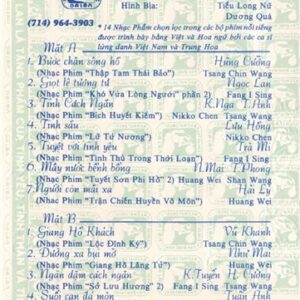 SAIGN
Hình Bìa: Tiểu Long Nữ
Dương Quá
(714) 964-3903
* 14 Nhạc Phẩm chọn lọc trong các bộ phim nổi tiếng
được trình bày bằng Việt và Hoa ngữ bởi các ca sĩ
lừng danh Việt Nam và Trung Hoa
Mặt A
1. Bước chân sông hồ Hùng Cường
(Nhạc Phim "Thập Tam Thái Bảo") Tsang Chin Wang
2. Giọt lệ tương tư Ngọc Lan
(Nhạc Phim "Khó Vừa Lòng Người" phần 2) Fang I Sing
3. Tình Cách Ngăn K.Nga T.Anh
(Nhạc Phim "Bích Huyết Kiếm") Nikko Chen Tsang Wang
4. Tình sầu Lưu Hồng
(Nhạc Phim "Lữ Tứ Nương") Nikko Chen
5. Tuyệt vời tình yêu Trà Mi
(Nhạc Phim "Tinh Thù Trong Thời Loạn") Fang I Sing
6. Mây nước bềnh bồng N.Mai T.Phong
(Nhạc Phim "Tuyết Sơn Phi Hồ" 2) Huang Wei Shan Wang
7. Người còn mãi xa Hải Lý
(Nhạc Phim "Trận Chiến Huyền Võ Môn") Huang Wei
Mặt B
1. Giang Hồ Khách Vũ Khanh
(Nhạc Phim "Lộc Đỉnh Ký") Tsang Chin Wang
2. Đường xa bụi mờ Như Mai
(Nhạc Phim "Giang Hồ Lãng Tử") Huang Wei
3. Ngàn dặm cách ngăn K.Tuyền H.Cường
(Nhạc Phim "Sở Lưu Hương" 2) Fang I Sing
4. Suối cạn đá mòn Tuấn Anh